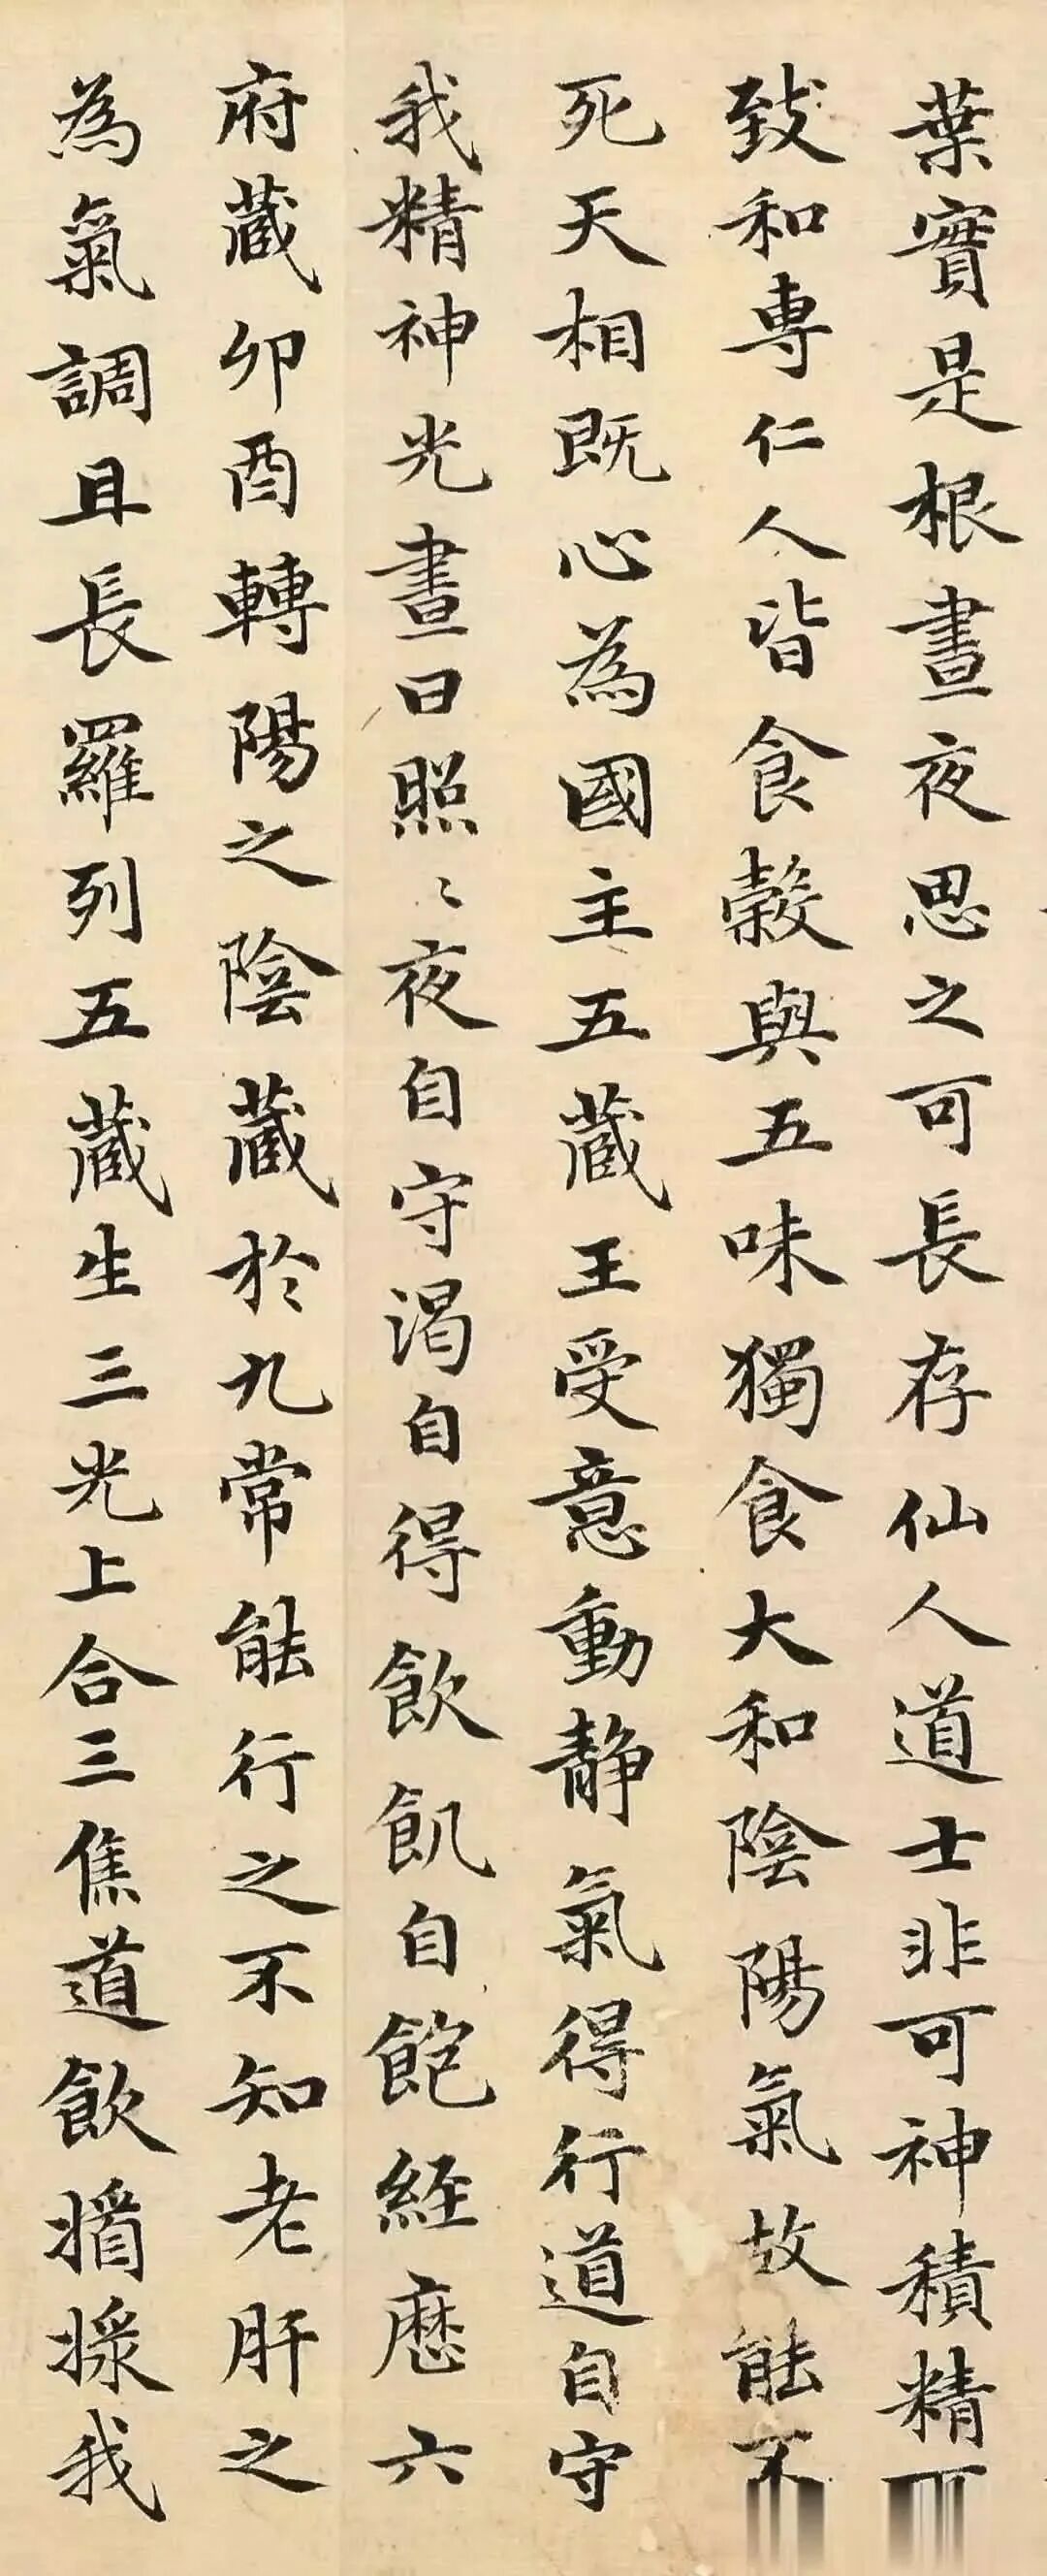 葉實是根晝夜思之可長存仙人道士非可神積精可
致和專仁人皆食穀與五味獨食大和陰陽氣故能不
死天相既心為國主五藏王受意動靜氣得行道自守
我精神光晝日照〻夜自守渴自得飲飢自飽經歷六
府藏卯酉轉陽之陰藏於九常能行之不知老肝之
為氣調且長羅列五藏生三光上合三焦道飲
我